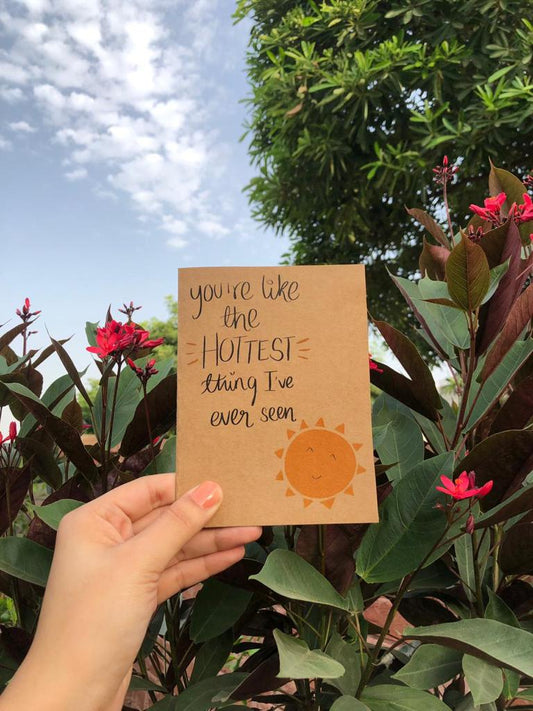 you're like
the
HOTTEST
thing I've
ever seen